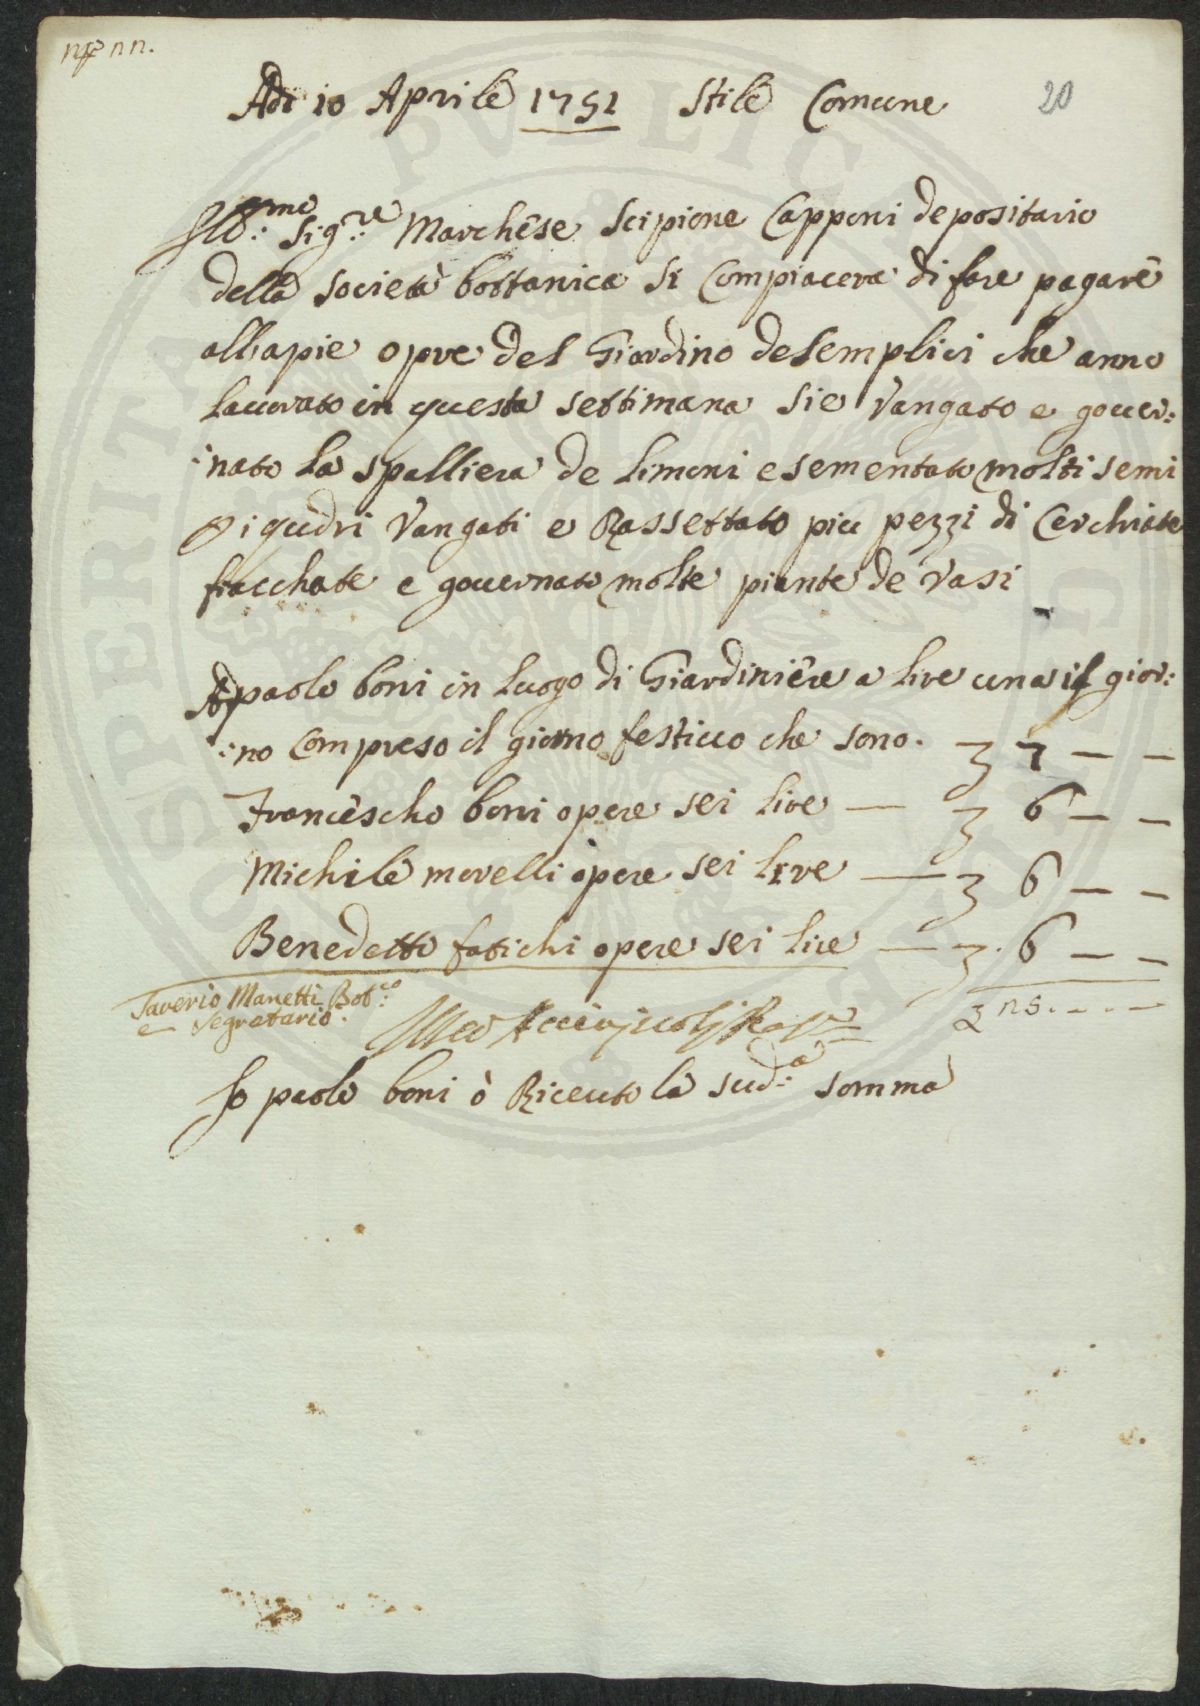 nº nn.
Adi 10 Aprile 1751 Stile Comune
20
Ill:mo Sig:re Marchese Scipione Capponi depositario
della Società bottanica si Compiacera di fare pagare
all apie opre del Giardino de Semplici che anno
lauorato in questa settimana sie Vangato e gouer:
:nato la spalliera de limoni e sementato molti semi
Vangati e Rassettato piu pezzi di Cerchiate
fiacchate e gouernato molte piante de Vasi
A paolo boni in luogo di Giardiniere a lire una il gior:
:no Compreso il giorno festiuo che sono. 7 — —
Francescho boni opere sei lire — 6 — —
Michile morelli opere sei lire — 6 — —
Benedetto fatichi opere sei lire — 6 — —
Saverio Manetti Bot:co
e Segretario.
25. — . —
Io paolo boni ò Riceuto la sud:a somma